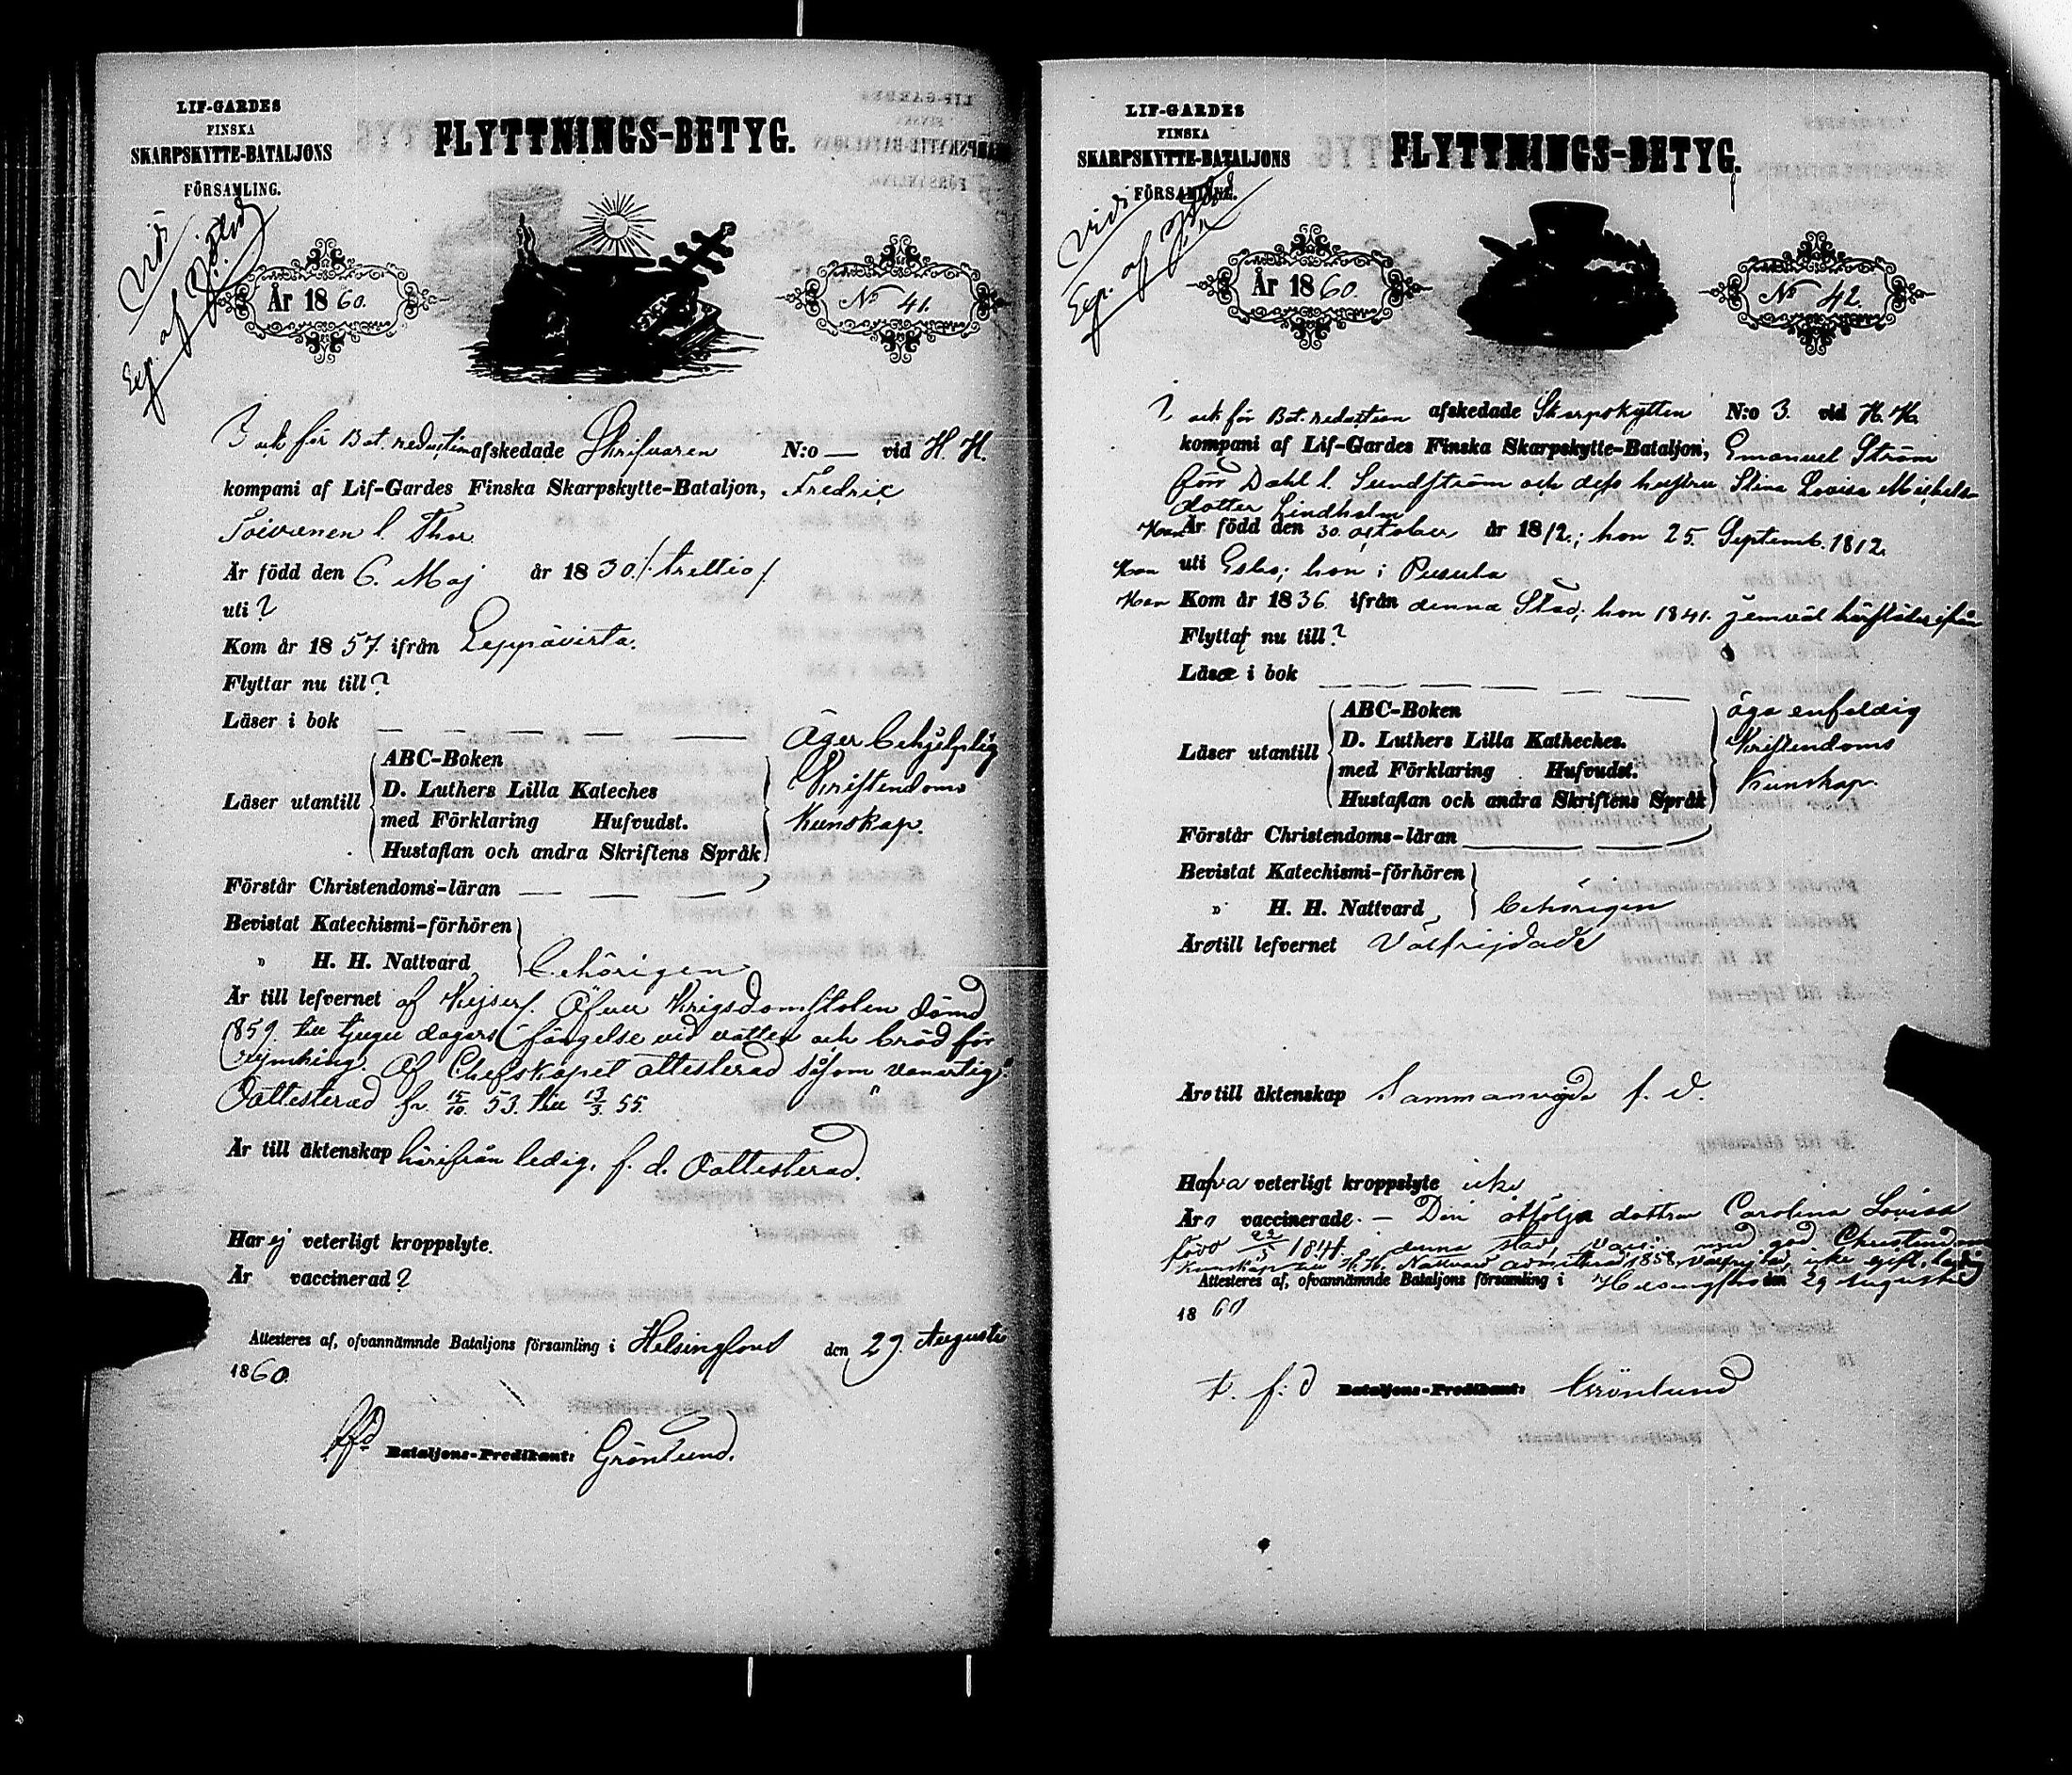 LIF-GARDES
FINSKA
SKARPSKYTTE-BATALJONS
FÖRSAMLING.
FLYTTNINGS-BETYG.
Vidi
Exp. af
År 1860.
No 41.
I och för Bat. reduction afskedade Skrifvaren N:o — vid H. H.
kompani af Lif-Gardes Finska Skarpskytte-Bataljon, Fredric
Toivanen l. Thor
Är född den 6. Maj år 1830./:trettio/
uti?
Kom år 1857. ifrån Leppävirta.
Flyttar nu till?
Läser i bok — — — — — Äger behjelplig
Läser utantill
ABC-Boken
D. Luthers Lilla Kateches
med Förklaring Hufvudst.
Hustaflan och andra Skriftens Språk
Kristendoms
Kunskap.
Förstår Christendoms-läran — — —
Bevistat Katechismi-förhören
" H. H. Nattvard
behörigen
Är till lefvernet af Kejserl. Öfver Krigsdomstolen dömd
1859. till tjugu dagars fängelse vid vatten och bröd för
rymning. Af Chefskapet attesterad såsom vanartig.
Oattesterad fr. 15/10. 53. till 13/3. 55.
Är till äktenskap härifrån ledig, f. d. Oattesterad.
Har ej veterligt kroppslyte.
Är vaccinerad?
Attesteres af, ofvannämnde Bataljons församling i Helsingfors den 29. Augusti
1860.
Bataljons-Predikant: Grönlund.
LIF-GARDES
FINSKA
SKARPSKYTTE-BATALJONS
FÖRSAMLING.
FLYTTNINGS-BETYG.
Vidi
Exp. af
År 1860.
No 42.
I och för Bat. reduction afskedade Skarpskytten N:o 3. vid H. H.
kompani af Lif-Gardes Finska Skarpskytte-Bataljon, Emanuel Ström
förr Dahl l. Sundström och dess hustru Stina Lovisa Michels
dotter Lindholm
Han Är född den 30. october år 1812.; hon 25. Septemb. 1812.
Han uti Esbo; hon i Pusula
Han Kom år 1836. ifrån denna Stad; hon 1841. jemväl härstädes ifrån
Flytta nu till?
Läsa i bok — — — — — —
Läser utantill
ABC-Boken
D. Luthers Lilla Katheches.
med Förklaring Hufvudst.
Hustaflan och andra Skriftens Språk
äga enfaldig
Kristendoms
Kunskap.
Förstår Christendoms-läran — — —
Bevistat Katechismi-förhören
" H. H. Nattvard
behörigen
Äro till lefvernet Välfrejdade
Äro till äktenskap Sammanvigde f. d.
Hafva veterligt kroppslyte icke
Äro vaccinerade. — Dem åtföljer dottren Carolina Lovisa
född 22/5 1841. i denna stad, med god Christendoms
Kunskap till H. H. Nattvard admitterad 1858, välfrejdad, icke gift, ledig
Attesteres af, ofvannämnde Bataljons församling i Helsingfors den 29 Augusti
1860
t. f: d Bataljons-Predikant: Grönlund